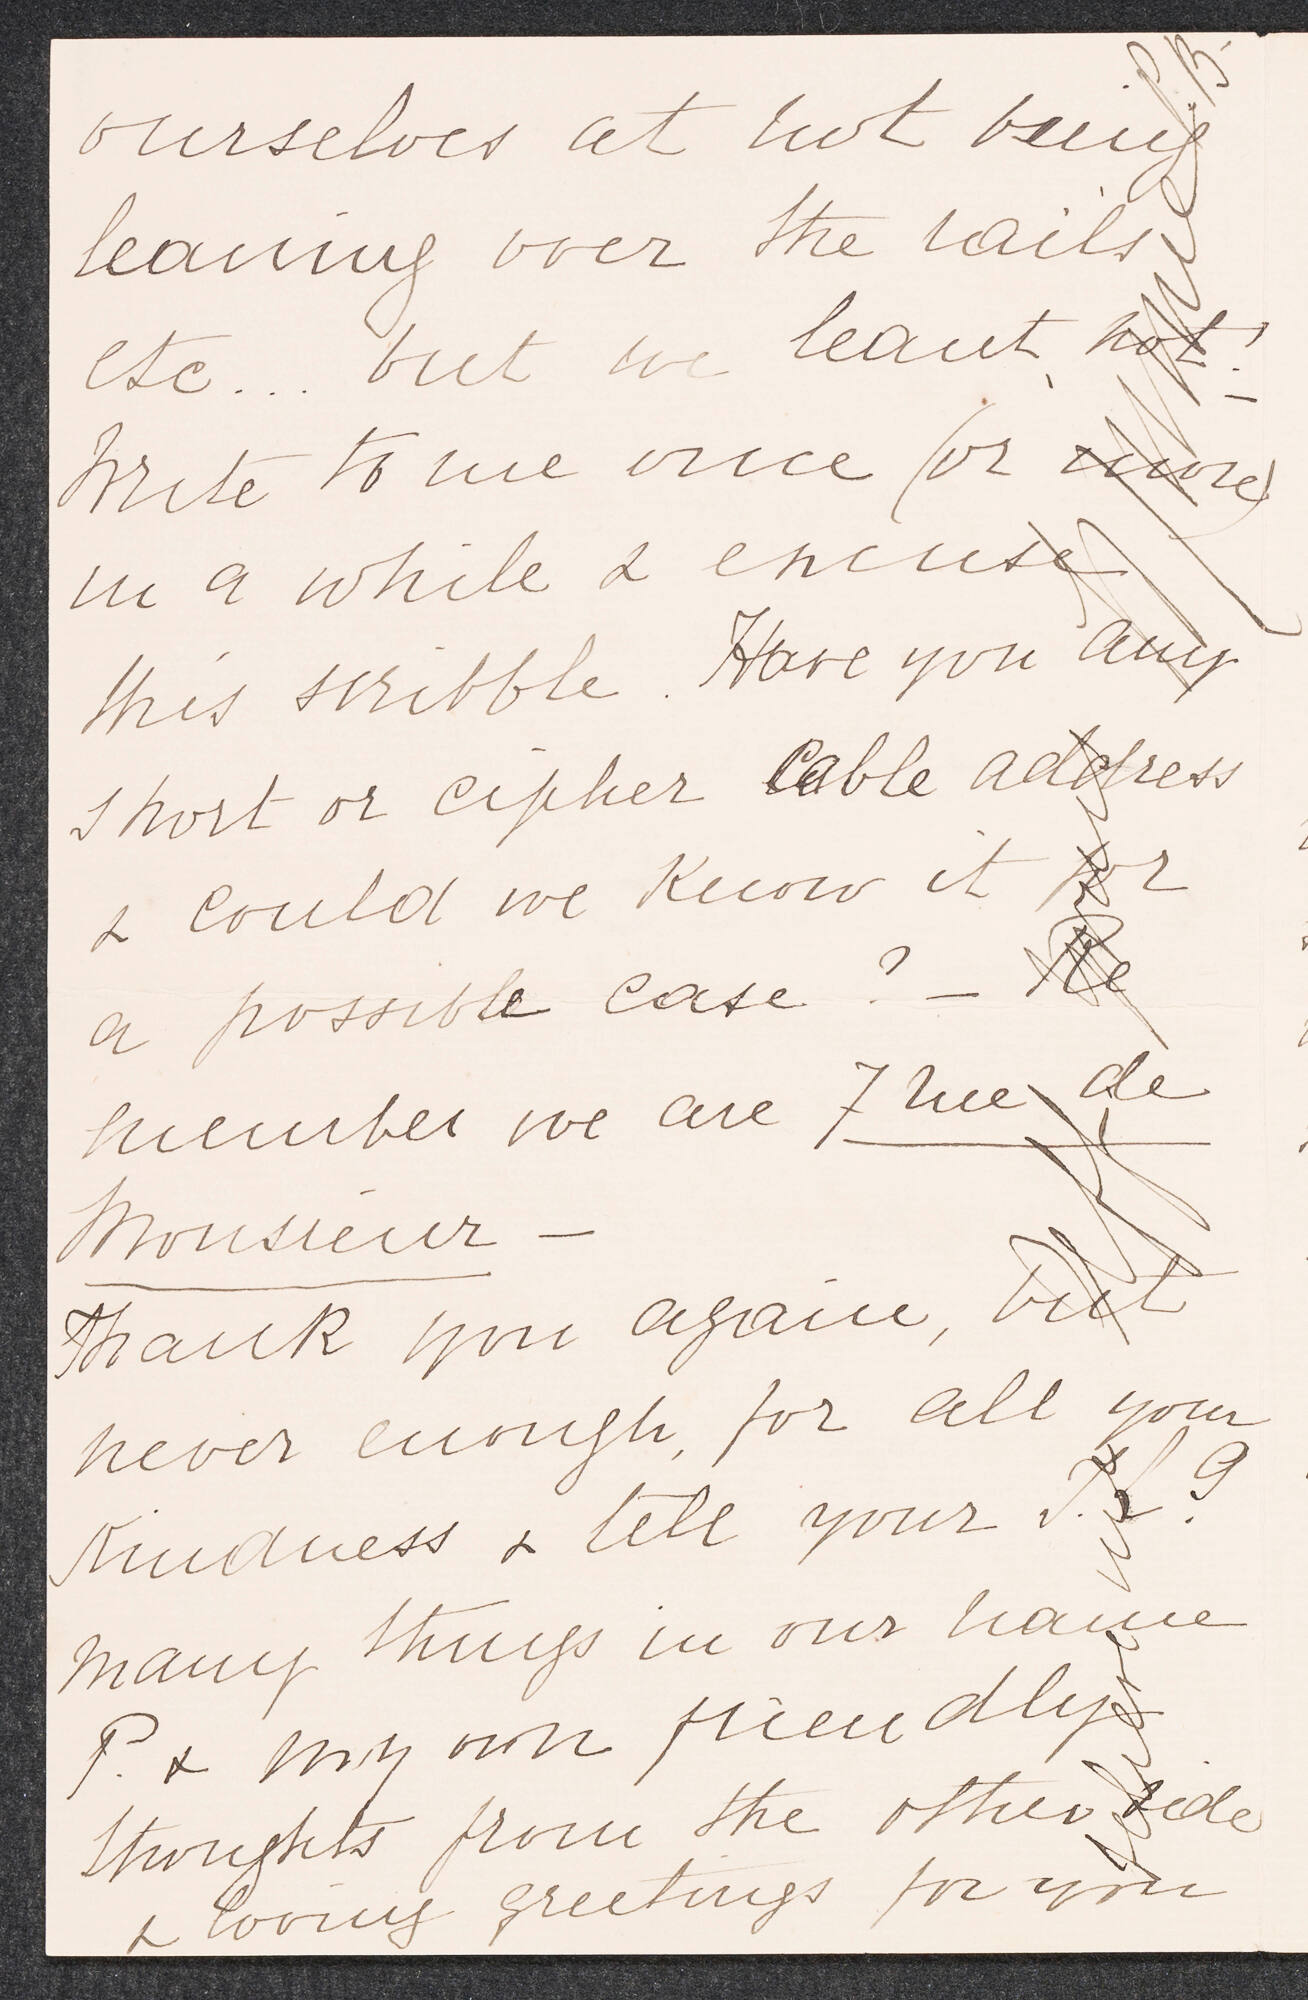 ourselves at not being
leaning over the rails
etc... but we leant, not!
Write to me once (or more)
in a while & excuse
this scribble. Have you any
short or cipher cable address
& could we know it for
a possible case? — Re
member we are 7 rue de
Monsieur —
Thank you again, but
never enough, for all your
kindness & tell your
many things in our name
P. & my own friendly
thoughts from the other side
& loving greetings for you